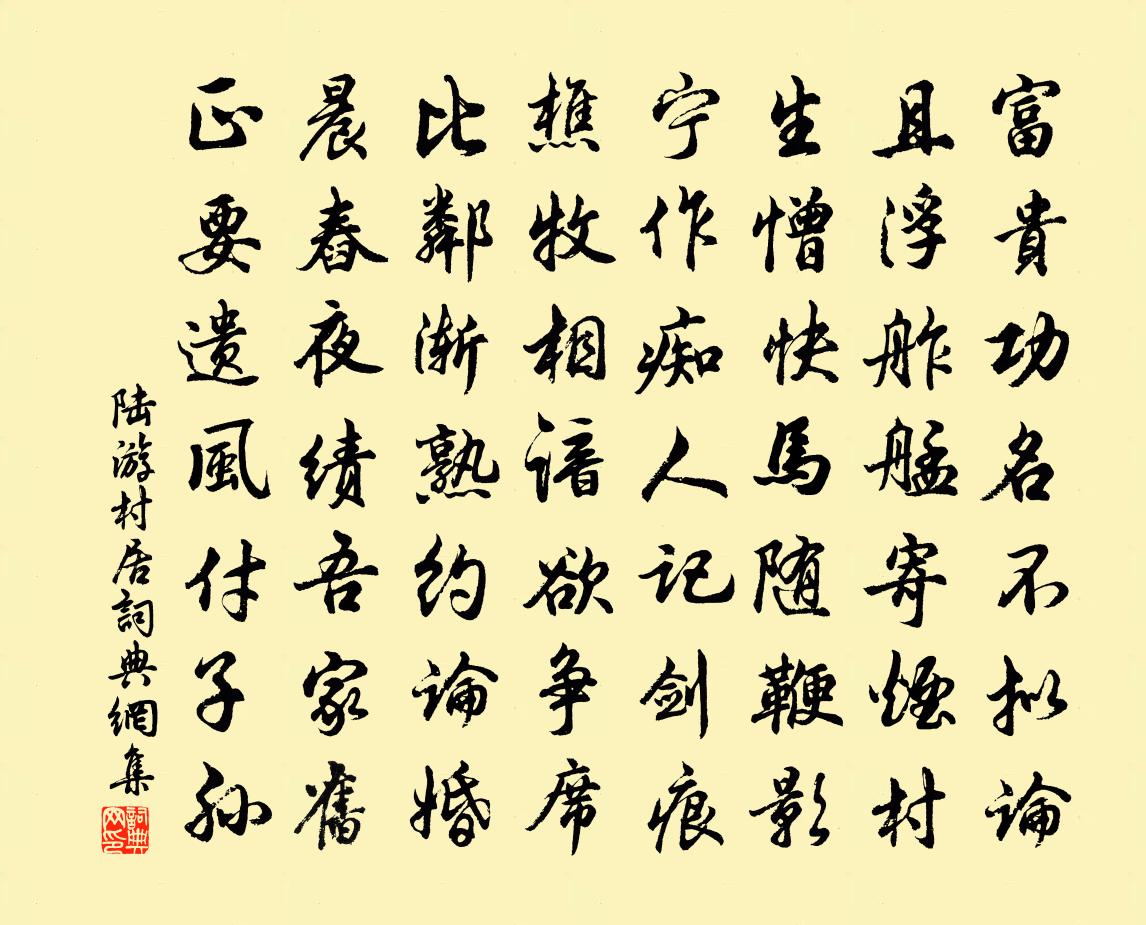 富貴功名不拟論
且浮舴艋寄煙村
生憎快馬随鞭影
宁作痴人记剑痕
樵牧相谙欲争席
比鄰渐熟约論婚
晨舂夜绩吾家舊
正要遗風付子孙
陆游村居詞典網集
詞典网印